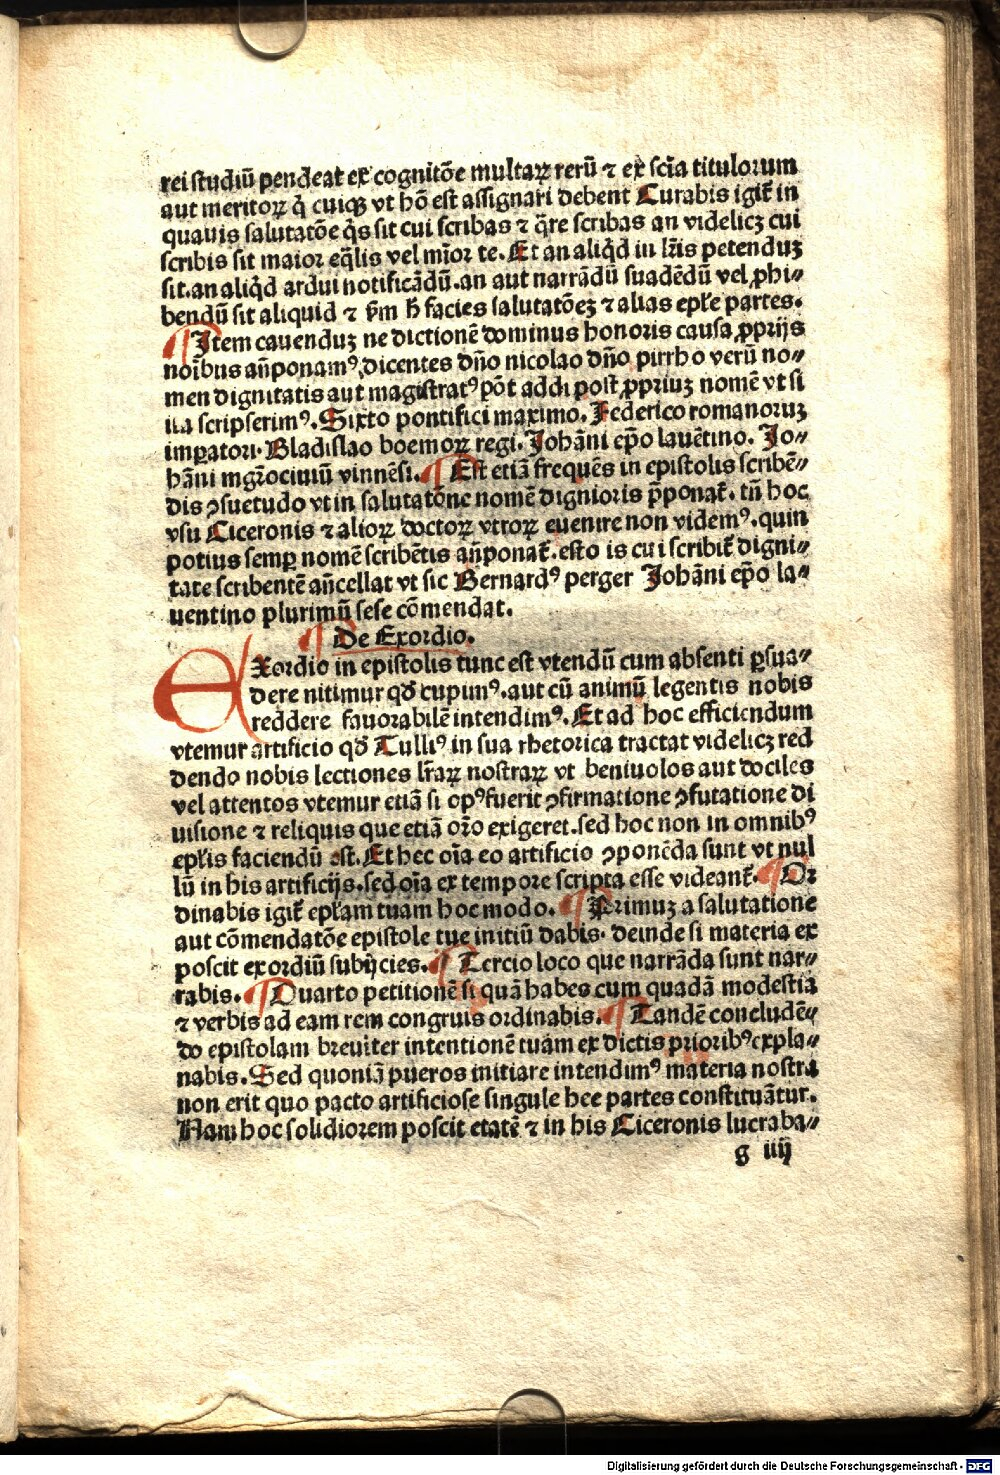 rei studiū pendeat ex cognitōe multaꝝ rerū ⁊ ex scīa titulorum
aut meritoꝝ q̄ cuiqꝫ vt hō est assignari debent Curabis igit̄ in
quauis salutatōe q̄s sit cui scribas ⁊ q̄re scribas an videlicꝫ cui
scribis sit maior eq̄lis vel mīor te. Et an aliqͥd in lr̄is petenduꝫ
sit. an aliqͥd ardui notificādū. an aut narrādū suadēdū vel ꝓhi⸗
bendū sit aliquid ⁊ ẜm h̄ facies salutatōeꝫ ⁊ alias epl̄e partes.
¶ Item cauenduꝫ ne dictionē dominus honoris causa ꝓprijs
noībus an̄ponamꝰ, dicentes dn̄o nicolao dn̄o pirrho verū no⸗
men dignitatis aut magistratꝰ pōt addi post ꝓpriuꝫ nomē vt si
ita scripserimꝰ. Sixto pontifici maximo. Federico romanoruꝫ
imꝑatori. Bladislao boemoꝝ regi. Johāni ep̄o lauētino. Jo⸗
hāni mgr̄o ciuiū vinnēsi. ¶ Est etiā frequēs in epistolis scribē⸗
dis ꝯsuetudo vt in salutatōne nomē dignioris p̄ponat̄. tn̄ hoc
vsu Ciceronis ⁊ alioꝝ doctoꝝ vtroꝝ euenire non videmꝰ. quin
potius semꝑ nomē scribētis an̄ponat̄. esto is cui scribit̄ digni⸗
tate scribentē an̄cellat vt sic Bernardꝰ perger Johāni ep̄o la⸗
uentino plurimū sese cōmendat.
¶ De Exordio.
EXordio in epistolis tunc est vtendū cum absenti ꝑsua⸗
dere nitimur qd̄ cupimꝰ. aut cū animū legentis nobis
reddere fauorabilē intendimꝰ. Et ad hoc efficiendum
vtemur artificio qd̄ Tulliꝰ in sua rhetorica tractat videlicꝫ red
dendo nobis lectiones lr̄aꝝ nostraꝝ vt beniuolos aut dociles
vel attentos vtemur etiā si opꝰ fuerit ꝯfirmatione ꝯfutatione di
uisione ⁊ reliquis que etiā orō exigeret. sed hoc non in omnibꝰ
epl̄is faciendū est. Et hec oīa eo artificio ꝯponēda sunt vt nul
lū in his artificijs. sed oīa ex tempore scripta esse videant̄. ¶ Or
dinabis igit̄ epl̄am tuam hoc modo. ¶ Primuꝫ a salutatione
aut cōmendatōe epistole tue initiū dabis. deinde si materia ex
poscit exordiū subijcies. ¶ Tercio loco que narrāda sunt nar⸗
rabis. ¶ Quarto petitionē si quā habes cum quadā modestia
⁊ verbis ad eam rem congruis ordinabis. ¶ Tandē concludē⸗
do epistolam breuiter intentionē tuam ex dictis prioribꝰ expla⸗
nabis. Sed quoniā pueros initiare intendimꝰ materia nostra
non erit quo pacto artificiose singule hee partes constituātur.
Nam hoc solidiorem poscit etatē ⁊ in his Ciceronis lucraba⸗
g iiij
Digitalisierung gefördert durch die Deutsche Forschungsgemeinschaft - DFG